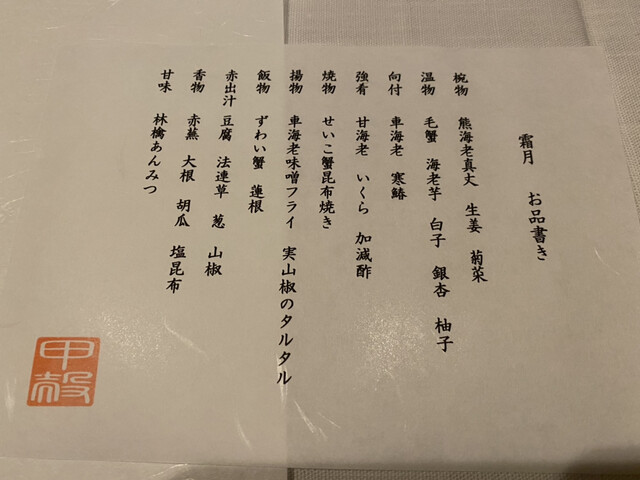 霜月 お品書き
椀物 熊海老真丈 生姜 菊菜
温物 毛蟹 海老芋 白子 銀杏 柚子
向付 車海老 寒鰆
強肴 甘海老 いくら 加減酢
焼物 せいこ蟹昆布焼き
揚物 車海老味噌フライ 実山椒のタルタル
飯物 ずわい蟹 蓮根
赤出汁 豆腐 法連草 葱 山椒
香物 赤蕪 大根 胡瓜 塩昆布
甘味 林檎あんみつ
甲殻